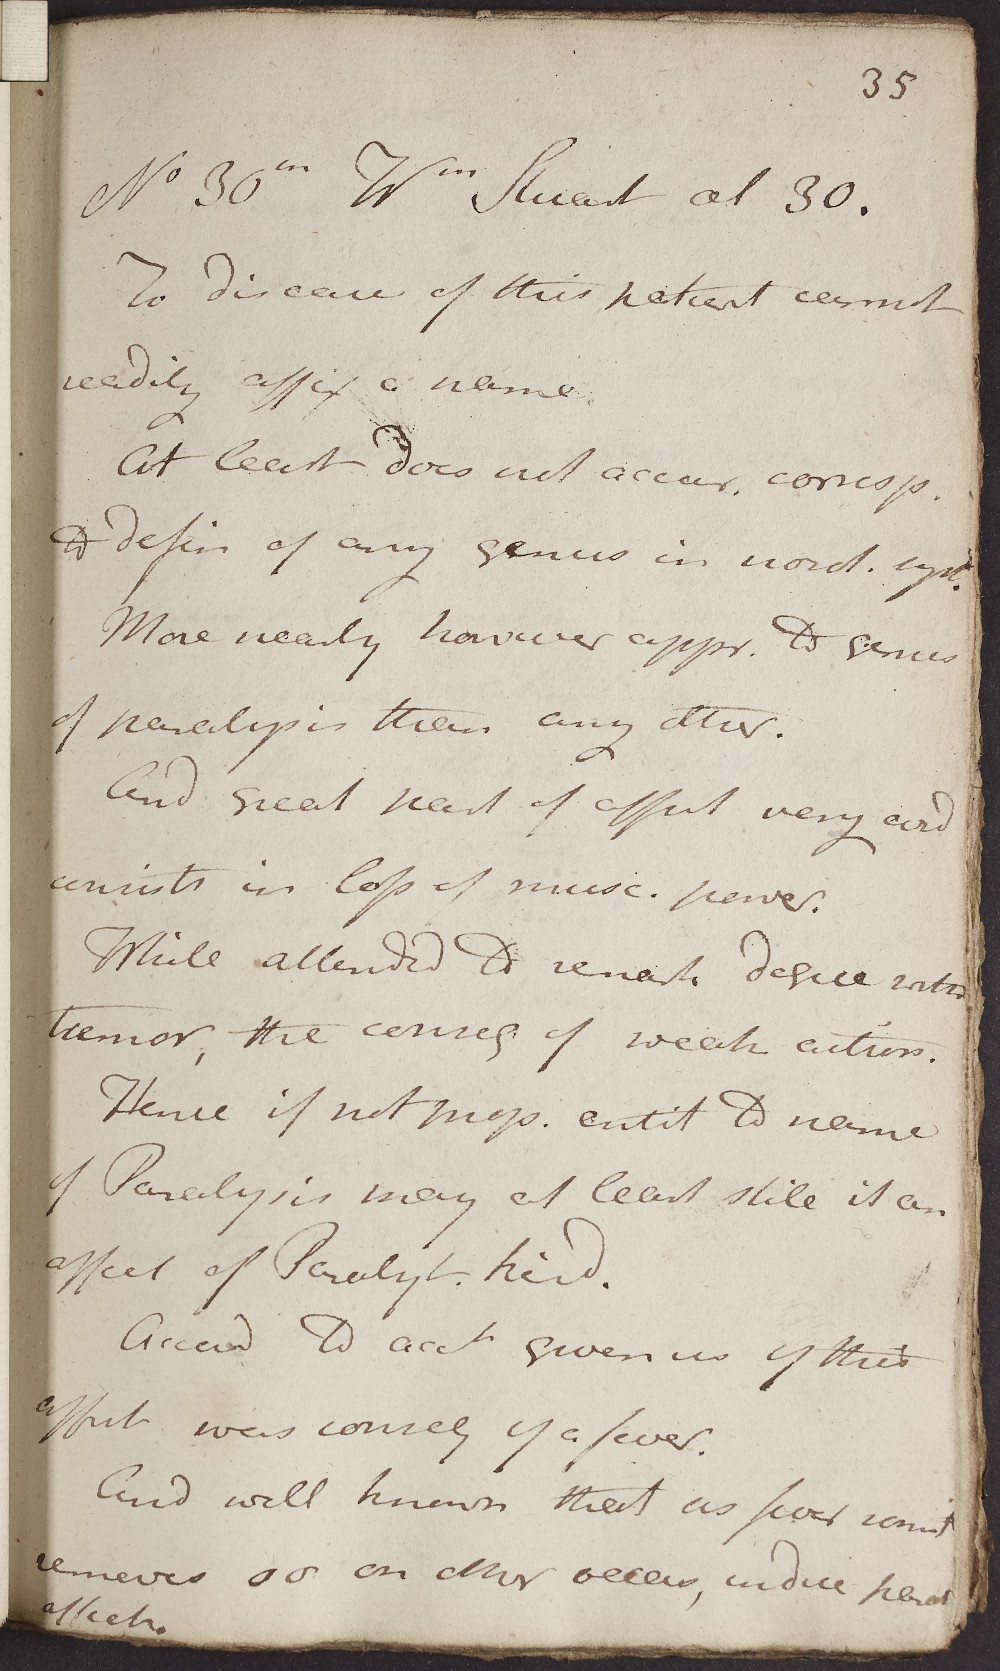 35
No 30m Wm Stuart æt 30.
To disease of this patient cannot
readily affix a name.
At least does not occur. corresp.
to defin of any genus in nosol. syst.
More nearly however appr. to genus
of paralysis than any other.
And great part of affect very evid
consists in loss of musc. power.
While attended to remark. degree with
tremor, the conseq of weak action.
Hence if not prop. entit to name
of Paralysis may at least stile it an
affect of Paralyt. kind.
Accord to acct given us of this
affect was conseq of a fever.
And well known that as fever somet
removes so on other occas, induce paral
affects.